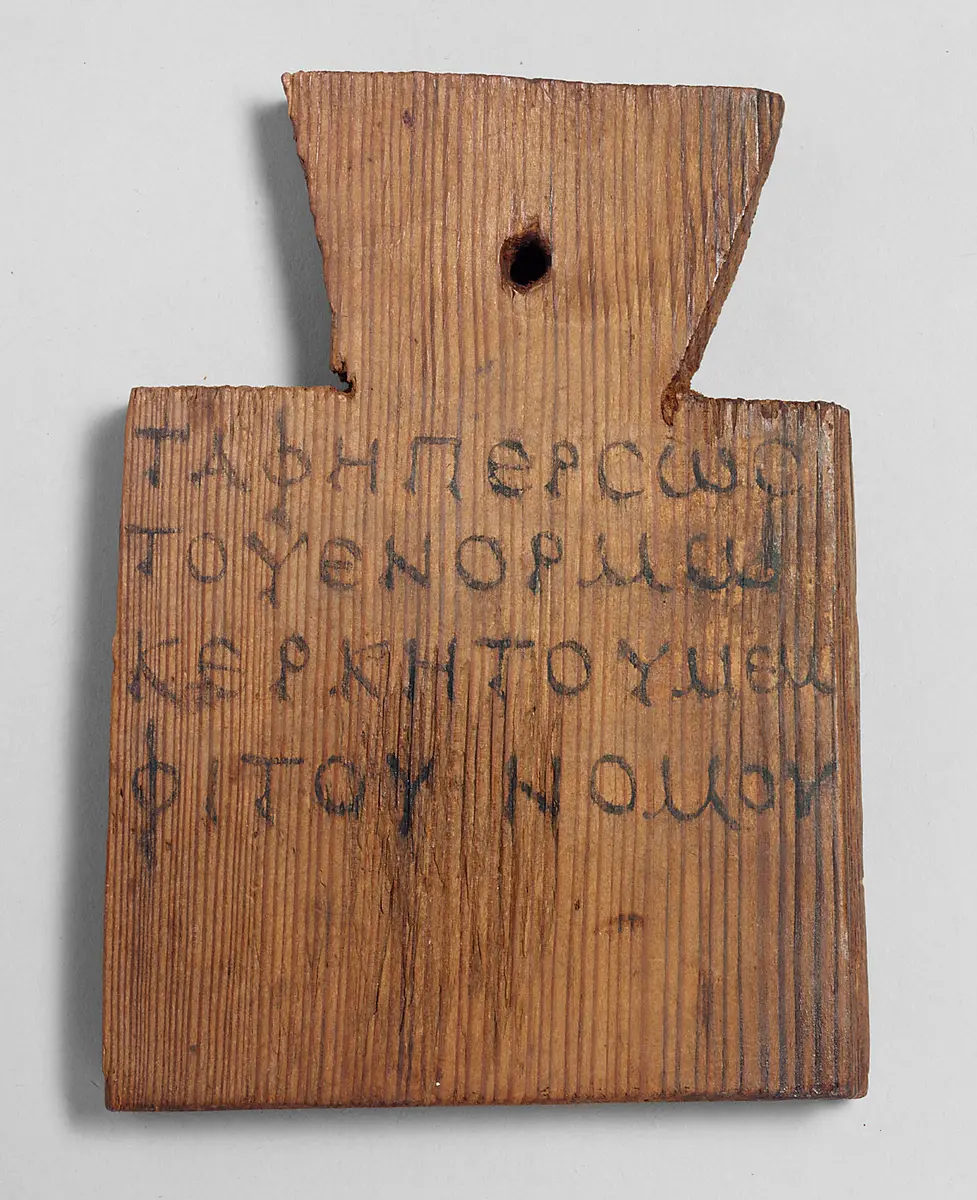 ΤΑΦΗΠΕΡΣΩΣ
ΤΟΥΘΝΟΡΜΩ
ΚΕΡΚΗΤΟΥΜΕΜ
ΦΙΤΟΥΝΟΜΟΥ